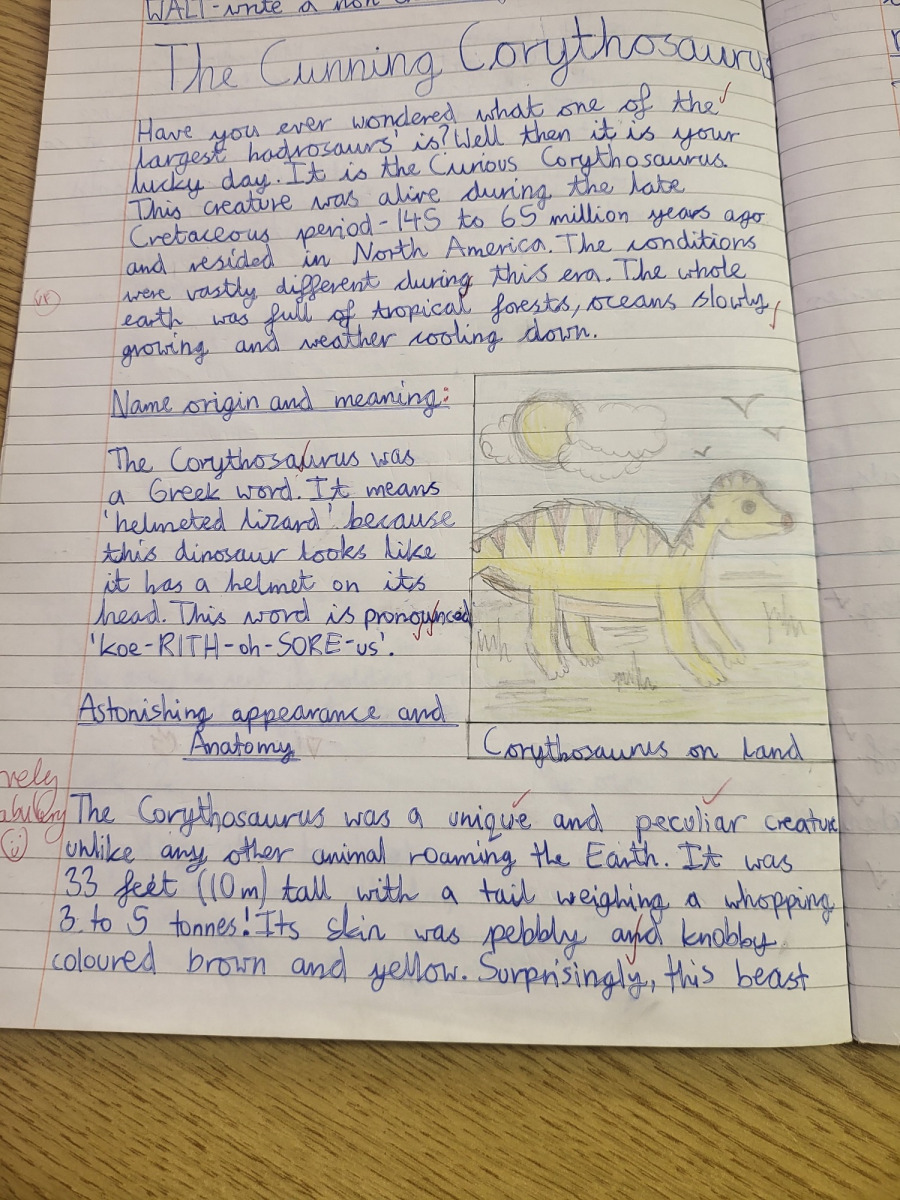 WALT-write a non
The Cunning Corythosaurus
Have you ever wondered what one of the
largest hadrosaurs' is? Well then it is your
lucky day. It is the Curious Corythosaurus.
This creature was alive during the late
Cretaceous period-145 to 65 million years ago
and resided in North America. The conditions
were vastly different during this era. The whole
earth was full of tropical forests, oceans slowly
growing and weather cooling down.
Name origin and meaning:
The Corythosaurus was
a Greek word. It means
'helmeted lizard' because
this dinosaur looks like
it has a helmet on its
head. This word is pronounced
'koe-RITH-oh-SORE-us'.
Astonishing appearance and
Anatomy
Corythosaurus on land
The Corythosaurus was a unique and peculiar creature
unlike any other animal roaming the Earth. It was
33 feet (10m) tall with a tail weighing a whopping
3 to 5 tonnes! Its skin was pebbly and knobby
coloured brown and yellow. Surprisingly, this beast